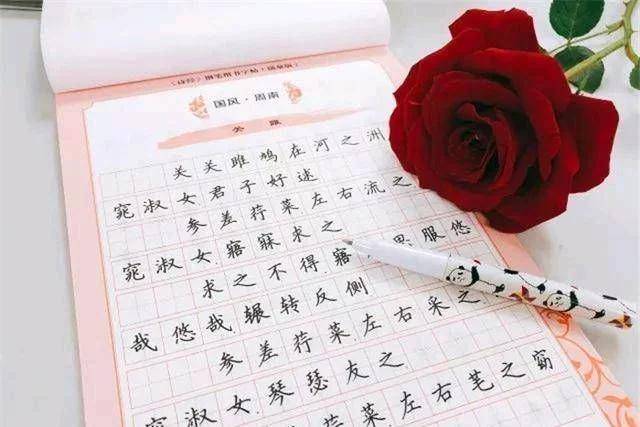 《诗经》钢笔楷书字帖
国风·周南
关雎
关关雎鸠在河之洲
窕淑女君子好逑
参差荇菜左右流之
窕淑女.寤寐求之
求之不得.寤思服悠
哉悠哉辗转反侧
参差荇菜左右采之
窕淑女.琴瑟友之
参差荇菜左右芼之窈